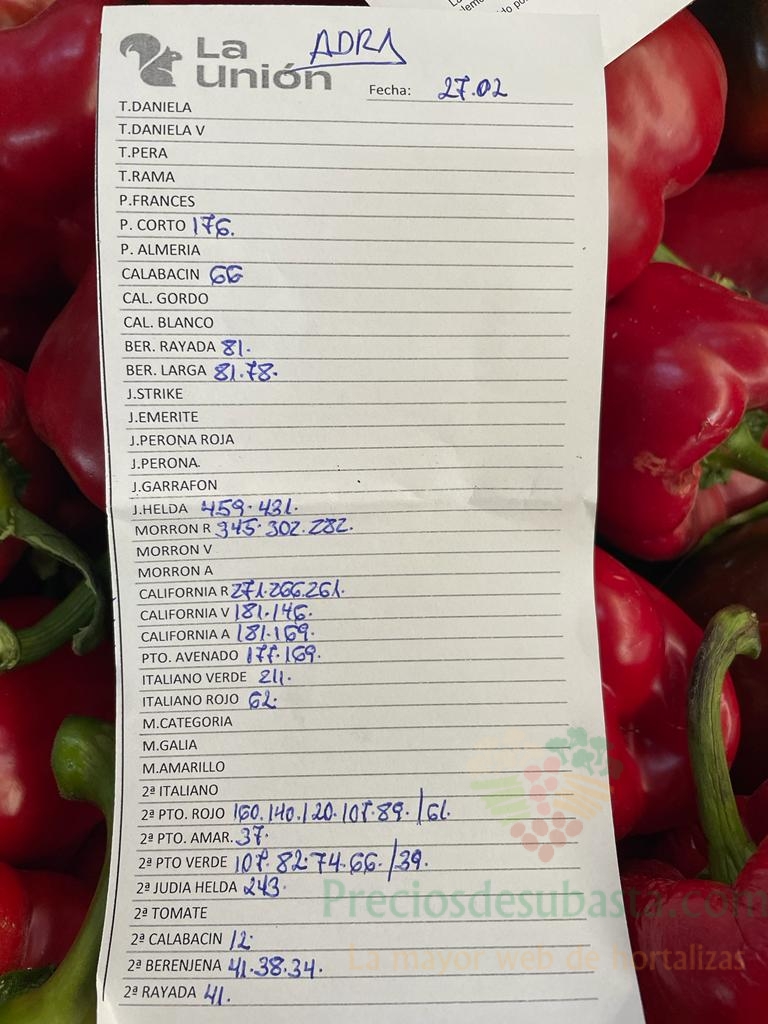 La ADRA
unión
Fecha: 27.02
T.DANIELA
T.DANIELA V
T.PERA
T.RAMA
P.FRANCES
P. CORTO 176.
P. ALMERIA
CALABACIN 66
CAL. GORDO
CAL. BLANCO
BER. RAYADA 81.
BER. LARGA 81.78.
J.STRIKE
J.EMERITE
J.PERONA ROJA
J.PERONA
J.GARRAFON
J.HELDA 459.431.
MORRON R 345.302.282.
MORRON V
MORRON A
CALIFORNIA R 271.266.261.
CALIFORNIA V 181.146.
CALIFORNIA A 181.169.
PTO. AVENADO 177.169.
ITALIANO VERDE 211.
ITALIANO ROJO 62.
M.CATEGORIA
M.GALIA
M.AMARILLO
2ª ITALIANO
2ª PTO. ROJO 160.140.120.107.89./61.
2ª PTO. AMAR. 37.
2ª PTO VERDE 107.82.74.66./39.
2ª JUDIA HELDA 243.
2ª TOMATE
2ª CALABACIN 12.
2ª BERENJENA 41.38.34.
2ª RAYADA 41.
Preciosdesubasta.com
La mayor web de hortalizas